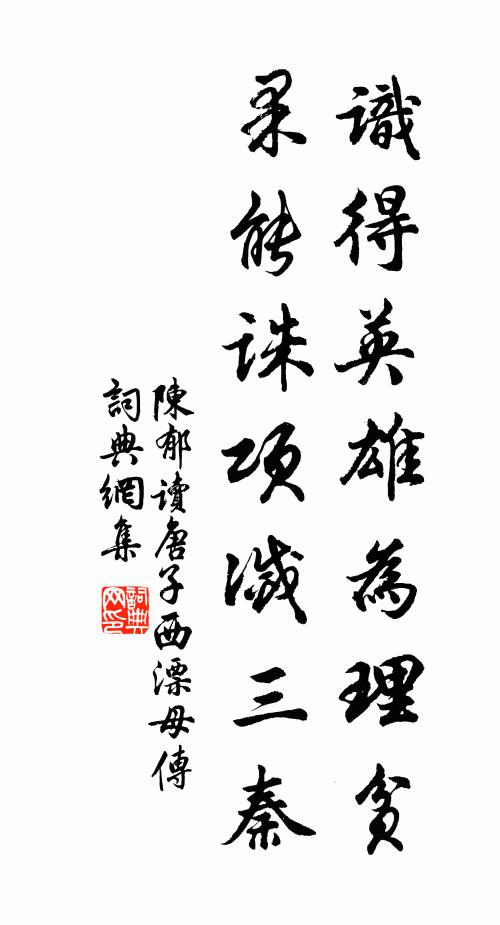 識得英雄為理貧
果能誅項滅三秦
陳郁讀唐子西漂母傳
詞典網集
詞典网印